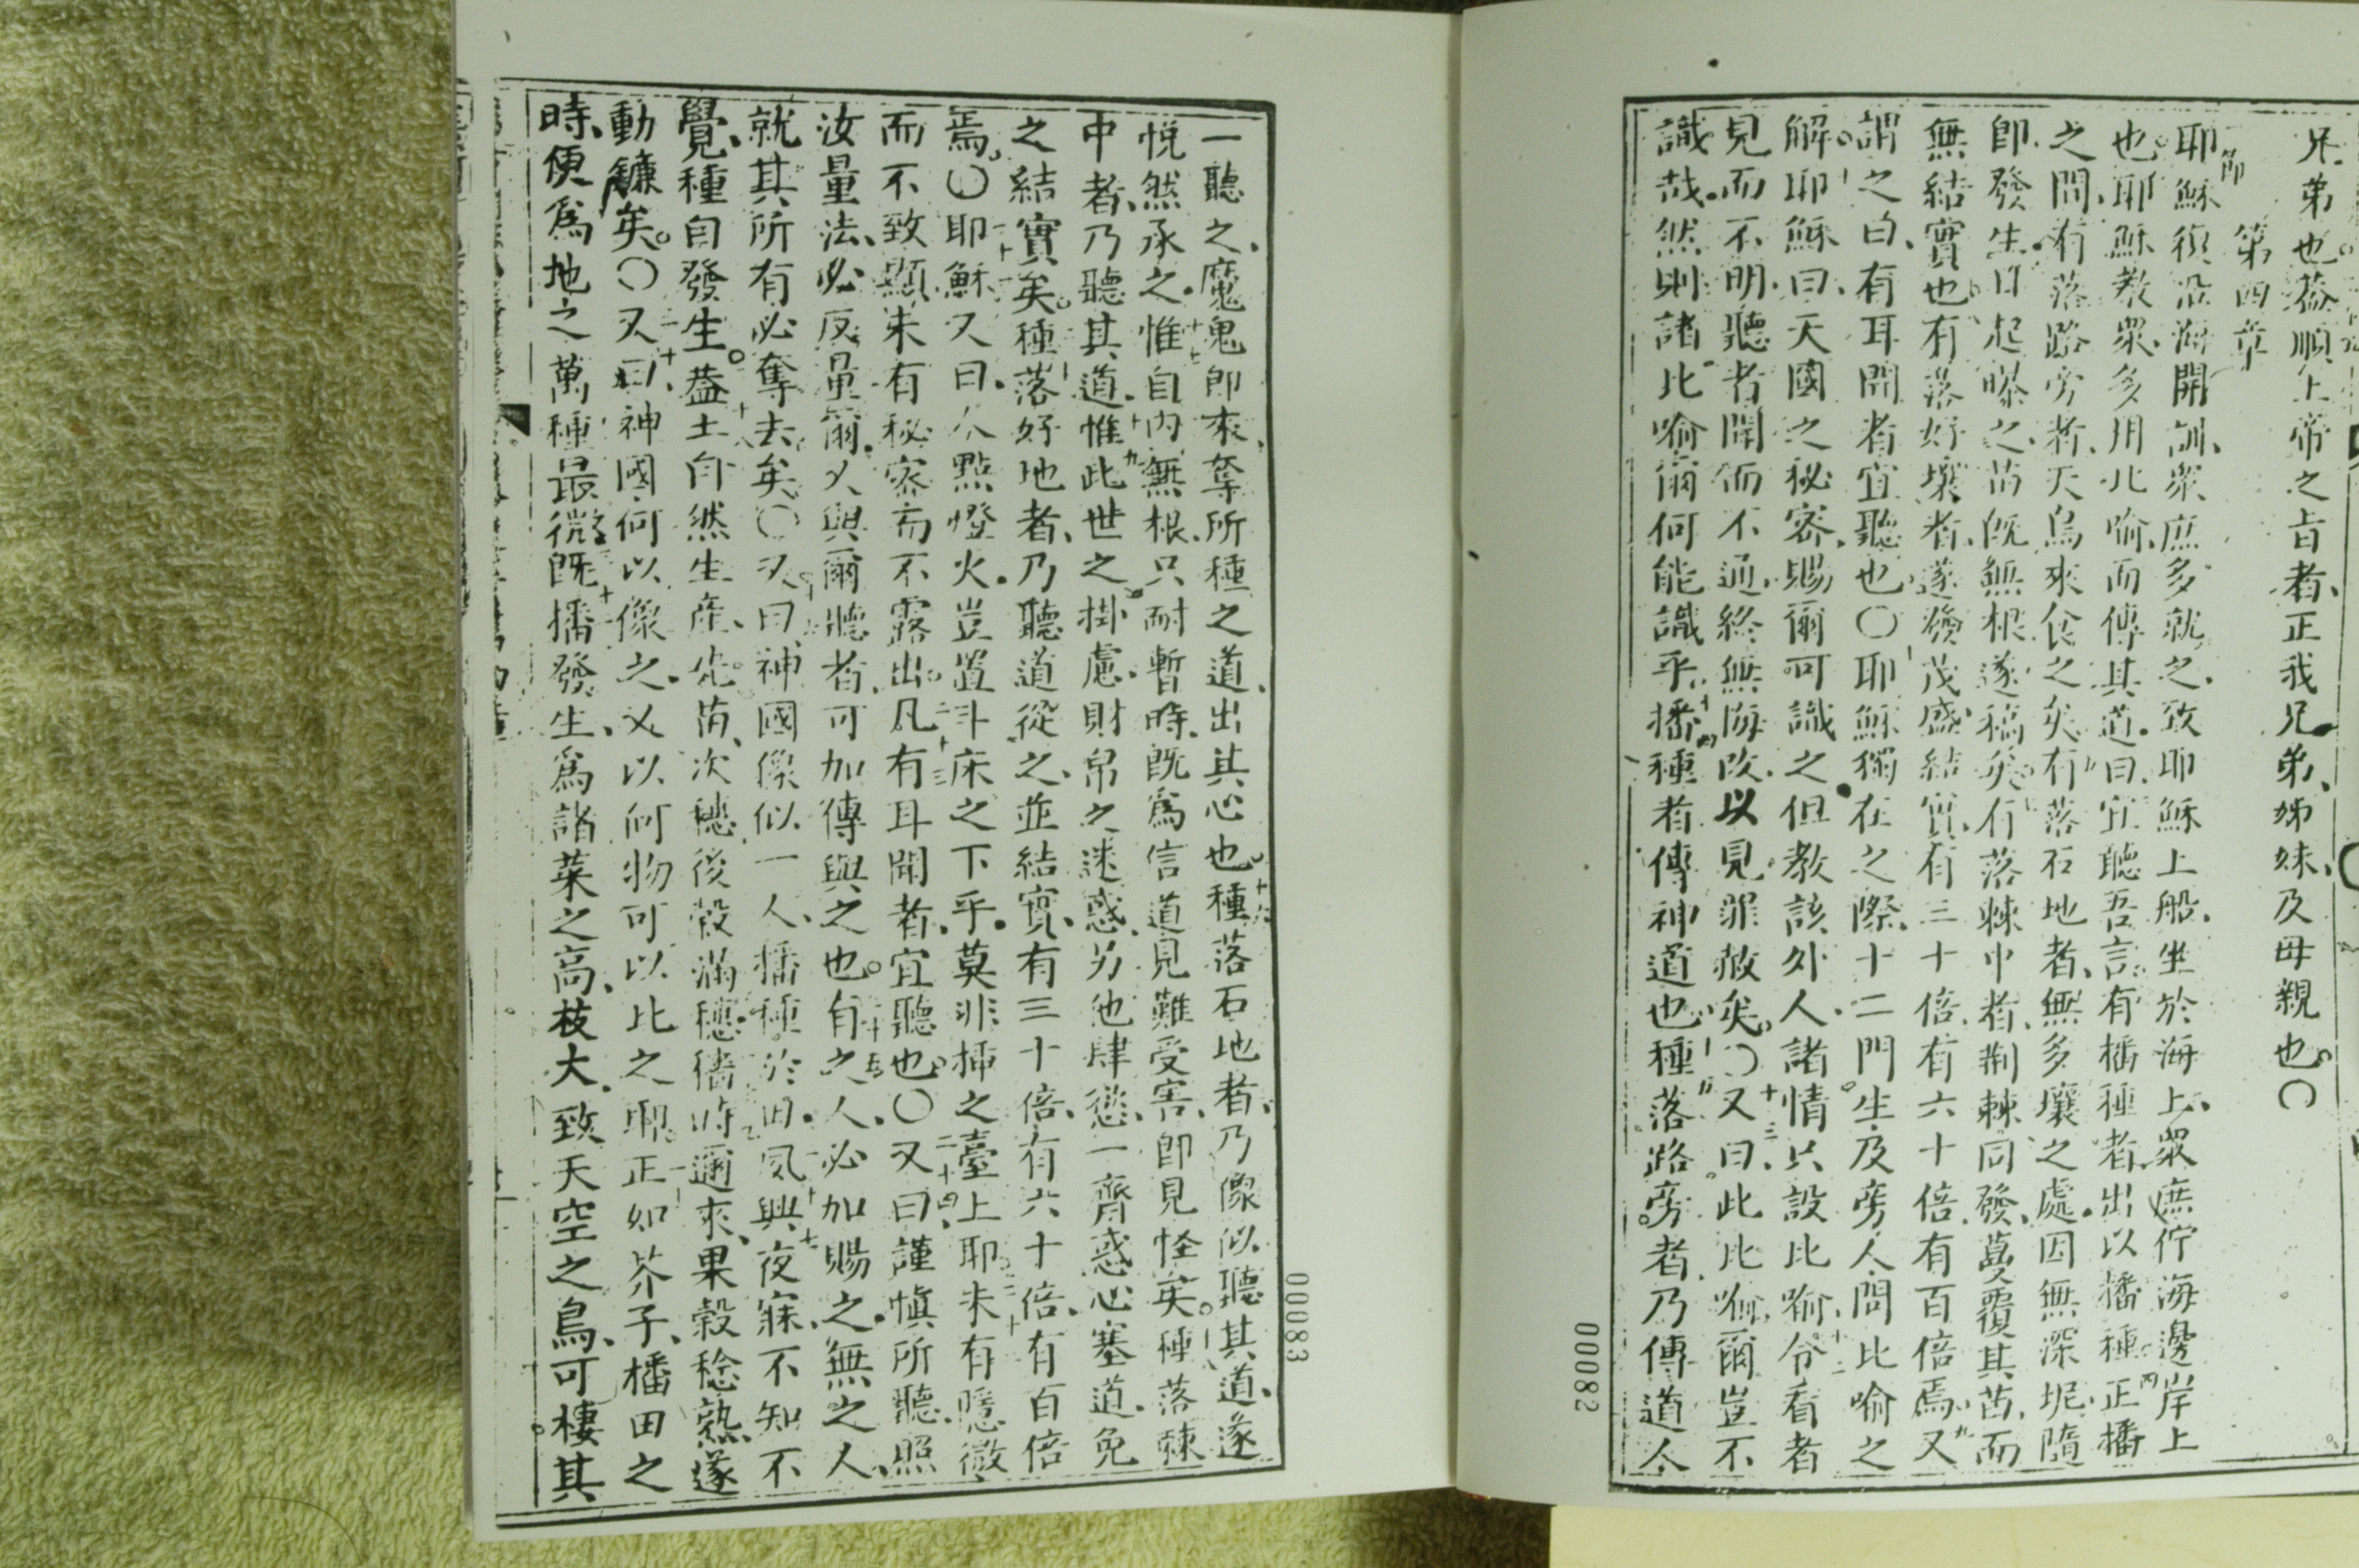 兄弟也葢順上帝之旨者、正我兄弟、姊妹、及母親也。〇
第四章
節
耶穌復沿海開訓、衆庶多就之、致耶穌上船、坐於海上、衆庶佇海邊岸上
也。耶穌教衆、多用比喻、而傳其道、曰、宜聽吾言。有播種者、出以播種。四正播
之間、有落路旁者、天鳥來食之矣。有落石地者、無多壤之處、因無深坭、隨
卽發生、日起曝之、苗旣無根、遂稿矣。有落棘中者、荆棘同發、蔓覆其苗、而
無結實也。有落好壤者、遂發茂盛、結實、有三十倍、有六十倍、有百倍焉。九又
謂之曰、有耳聞者宜聽也。〇耶穌獨在之際、十二門生及旁人問比喻之
解。耶穌曰、天國之秘密、賜爾可識之、但教該外人、諸情只設比喻、十二令看者
見而不明、聽者聞而不通、終無悔改、以見罪赦矣。〇十三又曰、此比喻、爾豈不
識哉、然則諸比喻、爾何能識乎、十四播種者、傳神道也。種落路旁者、乃傳道人
00082
一聽之、魔鬼卽來、奪所種之道、出其心也。十六種落石地者、乃像似聽其道、遂
悦然承之、十七惟自內無根、只耐暫時、旣爲信道見難受害、卽見怪矣。種落棘
中者、乃聽其道、十九惟此世之掛慮、財帛之迷惑、另他肆慾、一齊惑心塞道、免
之結實矣。種落好地者、乃聽道從之、並結實、有三十倍、有六十倍、有百倍
焉。〇二十一耶穌又曰、人點燈火、豈置斗床之下乎、莫非揷之臺上耶、未有隱微
而不致顯、未有秘密而不露出。二十三凡有耳聞者、宜聽也。〇二十四又曰、謹愼所聽、照
汝量法、必反量爾、又與爾聽者、可加傳與之也。二十五有之人、必加賜之、無之人、
就其所有必奪去矣。〇又曰、神國像似一人、播種於田、夙興夜寐、不知不
覺、種自發生。葢土自然生產、先苗、次穗、後穀滿穗、穡時邇來、果穀稔熟、遂
動鐮矣。〇三十又曰、神國何以像之、又以何物可以比之耶。正如芥子、播田之
時、便爲地之萬種最微、旣播發生、爲諸菜之高、枝大、致天空之鳥、可棲其
00083